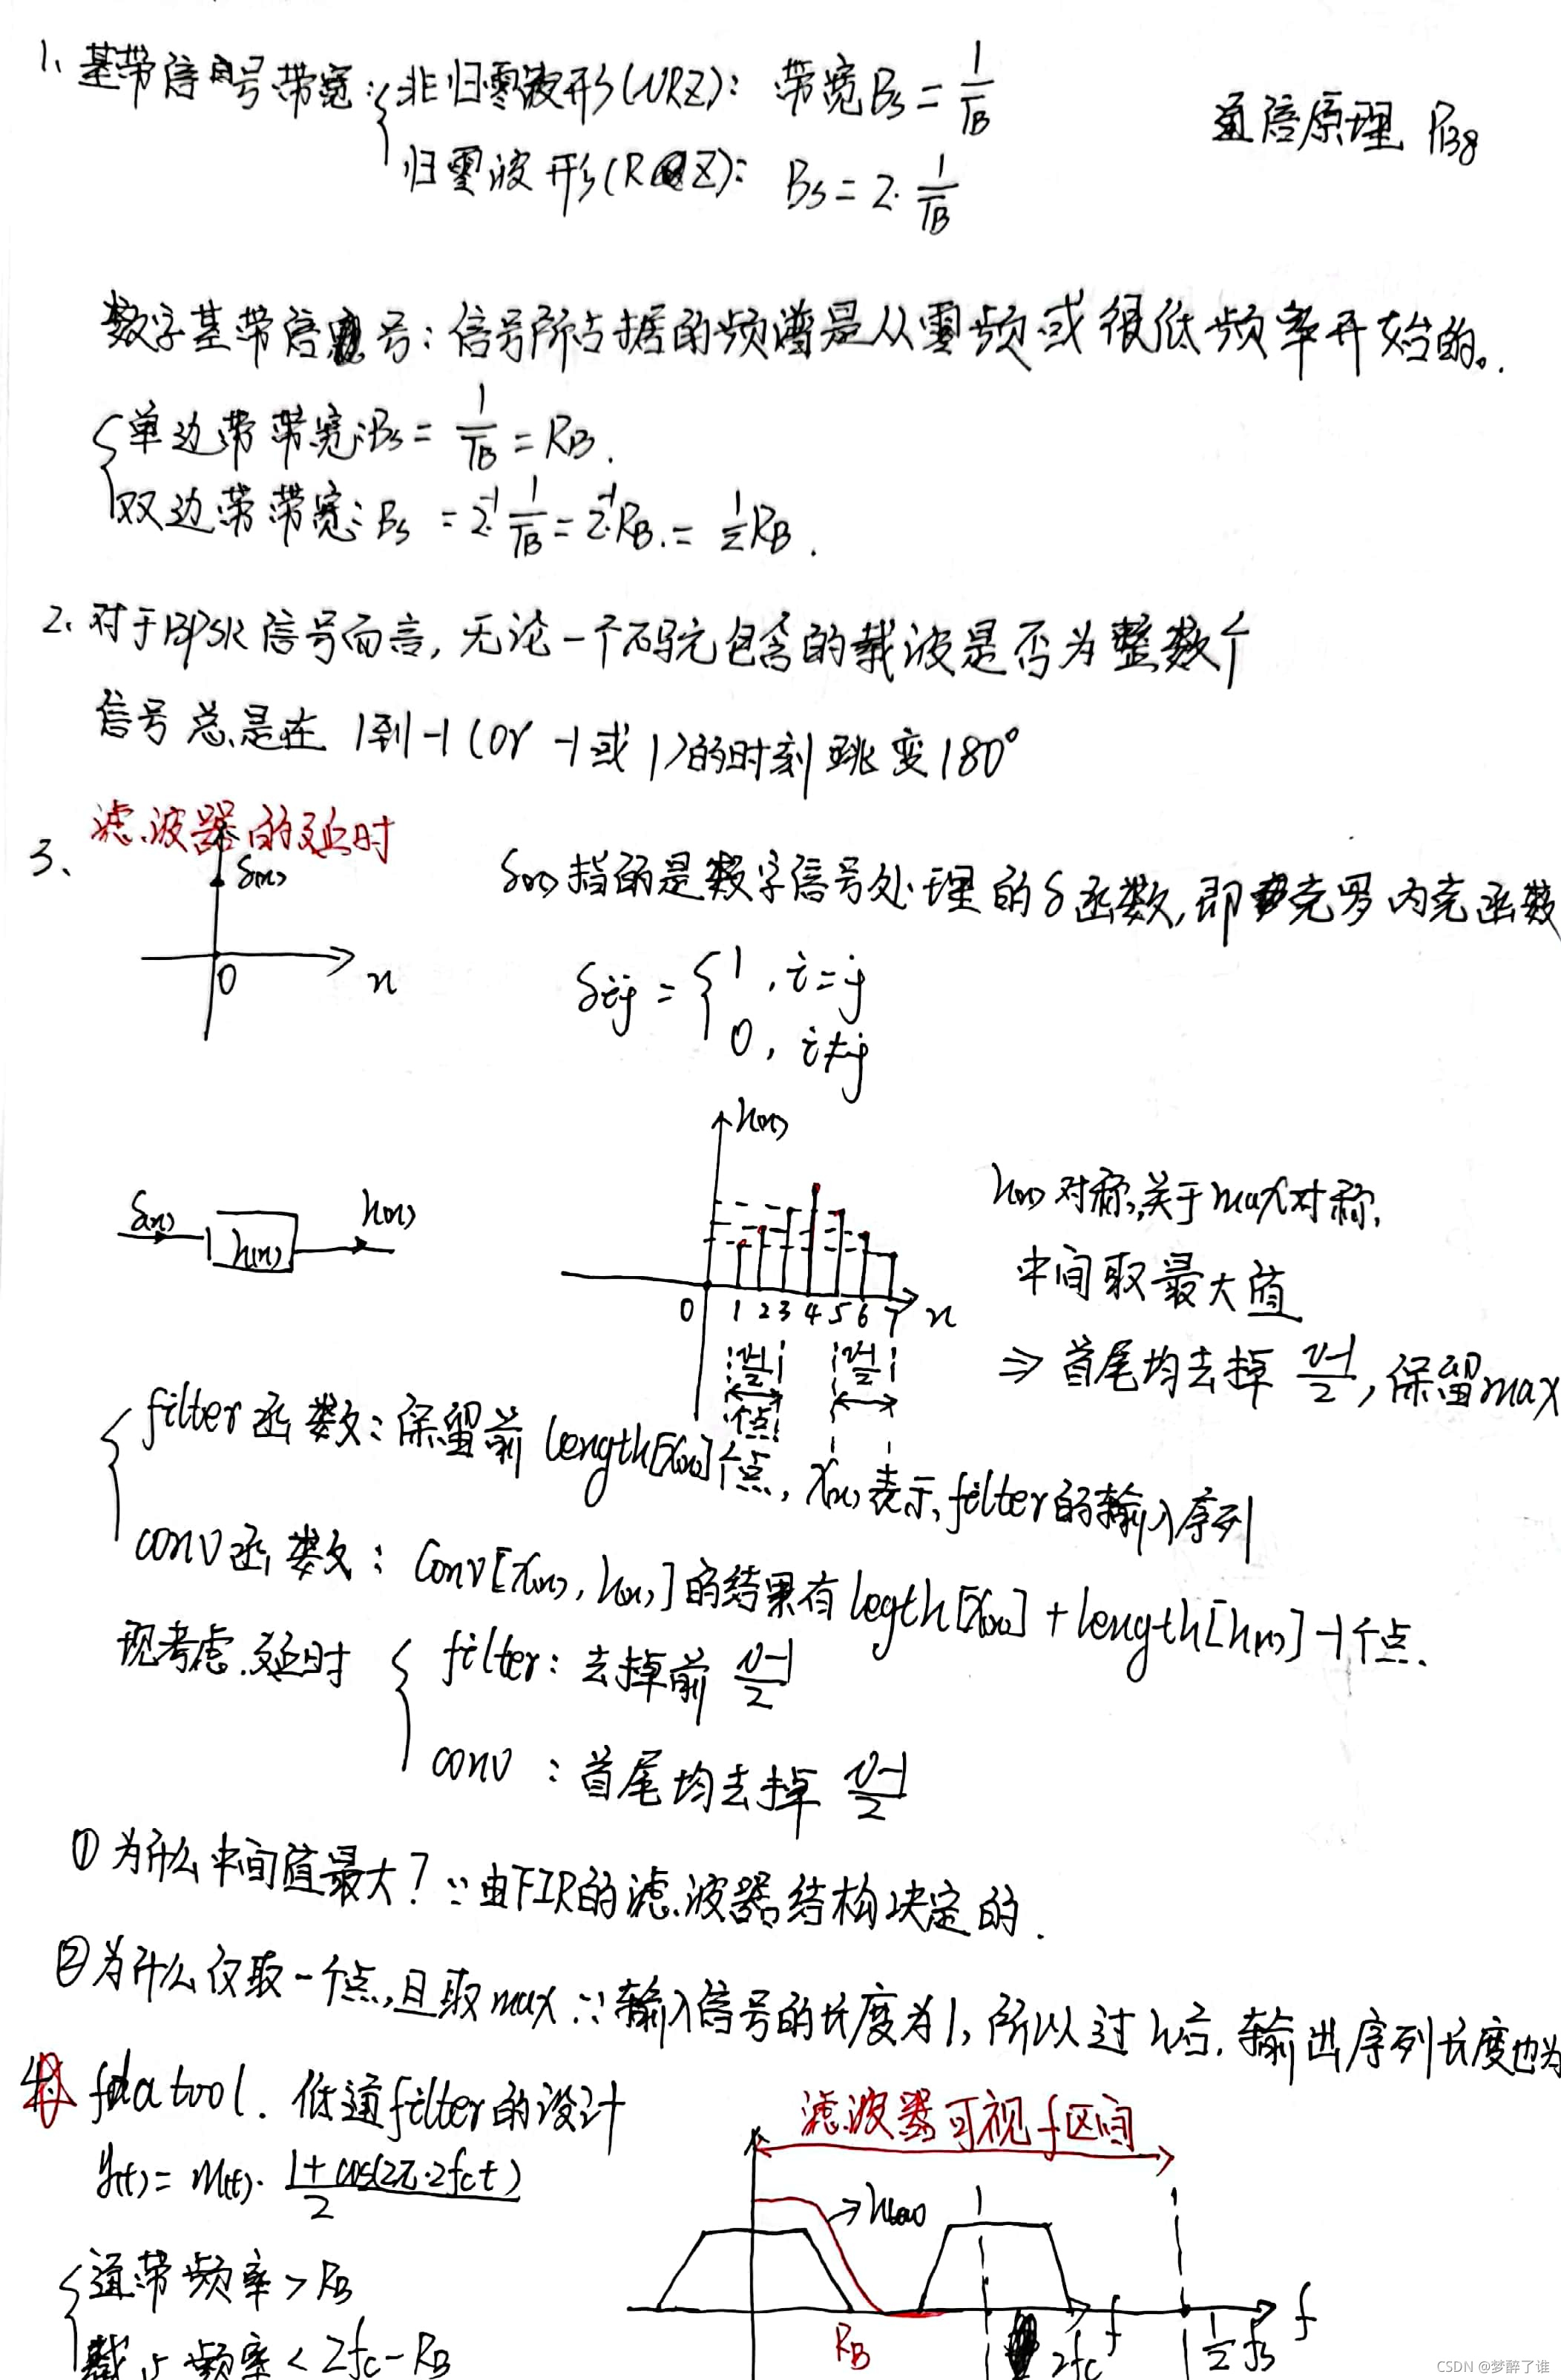 1、基带信号带宽：{非归零波形(NRZ)：带宽Bs = 1/TB
归零波形(RZ)：Bs = 2·1/TB
通信原理 P138
数字基带信号：信号所占据的频谱是从零频或很低频率开始的。
{单边带带宽：Bs = 1/TB = RB.
双边带带宽：Bs = 2⁻¹·1/TB = 2⁻¹·RB. = 1/2 RB.
2、对于BPSK信号而言，无论一个码元包含的载波是否为整数个
信号总是在 1到-1(or -1或1)的时刻跳变180°
3、滤波器的延时
δ(n)
0
n
δ(n)指的是数字信号处理的δ函数，即克罗内克函数
δij = {1, i=j
0, i≠j
δ(n)
h(n)
h(n)
h(n)
0 1 2 3 4 5 6 7 n
v-1/2
个点
v-1/2
h(n)对称，关于max对称，
中间取最大值
⇒ 首尾均去掉 v-1/2，保留max
{filter函数：保留前length[x(n)]个点，x(n)表示filter的输入序列
conv函数：Conv[x(n), h(n)]的结果有legth[x(n)]+length[h(n)]-1个点.
现考虑延时 {filter：去掉前 v-1/2
conv：首尾均去掉 v-1/2
①为什么中间值最大？∵由FIR的滤波器结构决定的.
②为什么仅取一个点，且取max ∵输入信号的长度为1，所以过h后，输出序列长度也为
4、fdatool. 低通filter的设计
y(t) = m(t)· 1+cos(2π·2fct)/2
{通带频率 > RB
截止频率 < 2fc-RB
滤波器可视f区间
RB
2fc
f
1/2 fs
f
CSDN @梦醉了谁